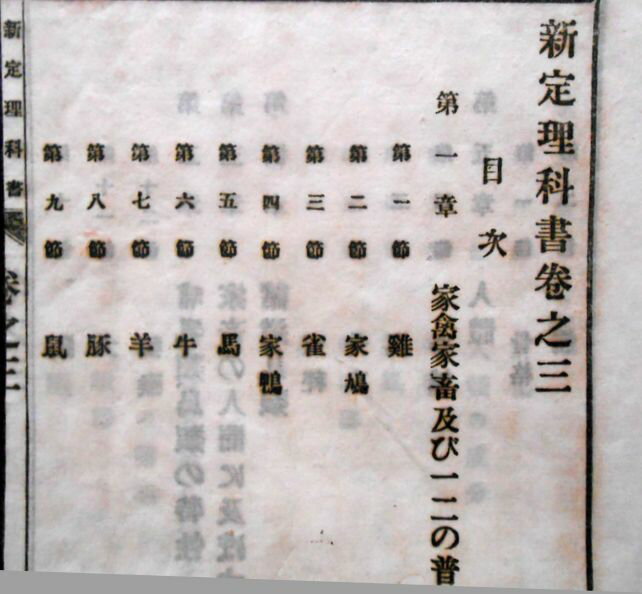 新定理科書卷之三
目次
第一章 家禽家畜及び一二の普
第一節 雞
第二節 家鳩
第三節 雀
第四節 家鴨
第五節 馬
第六節 牛
第七節 羊
第八節 豚
第九節 鼠
新定理科書 卷之三